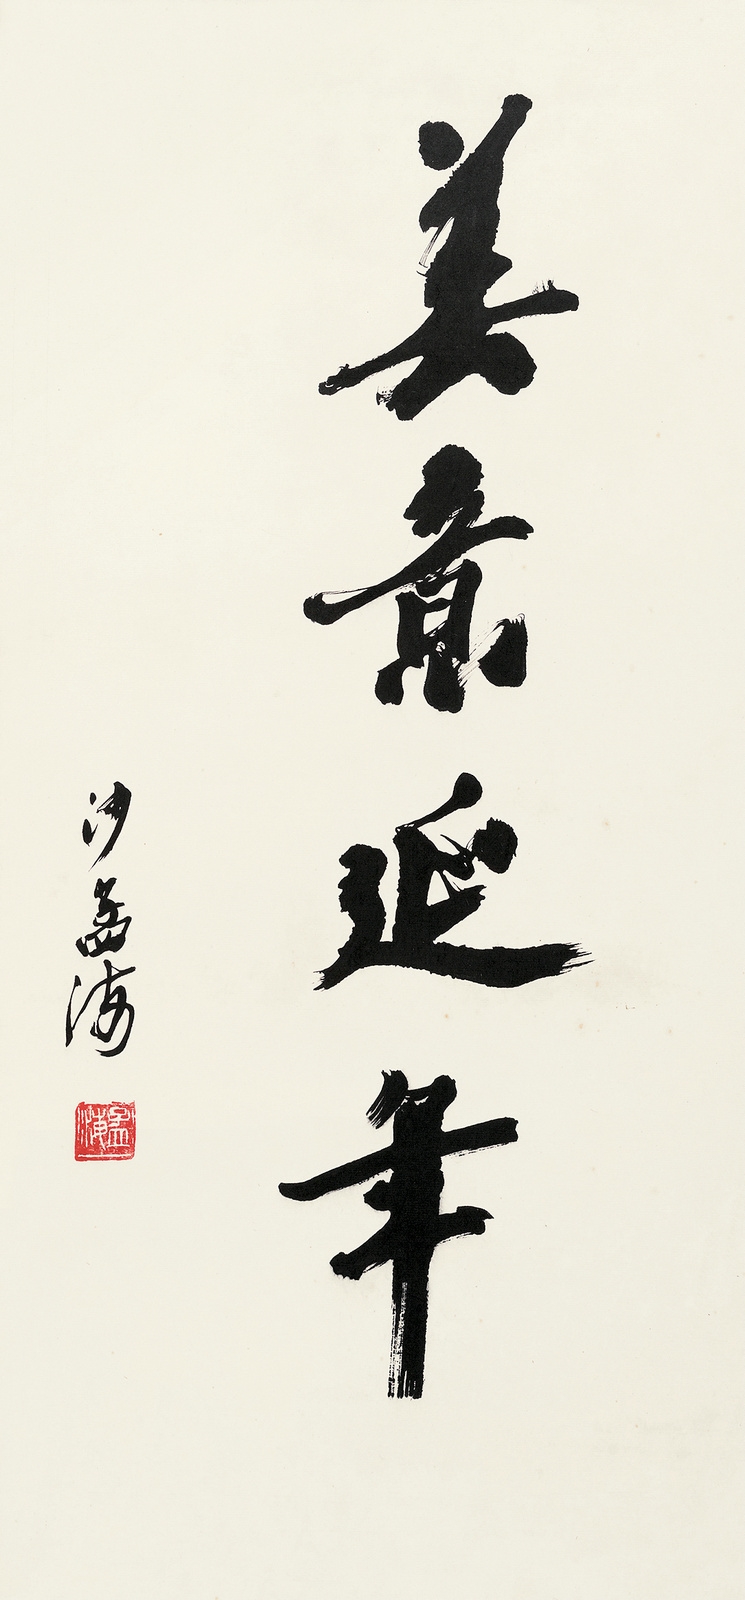 美意延年
沙孟海
孟海